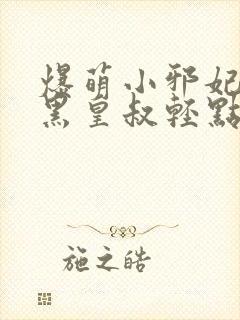 爆萌小邪妃
黑皇叔輕點
施之皓